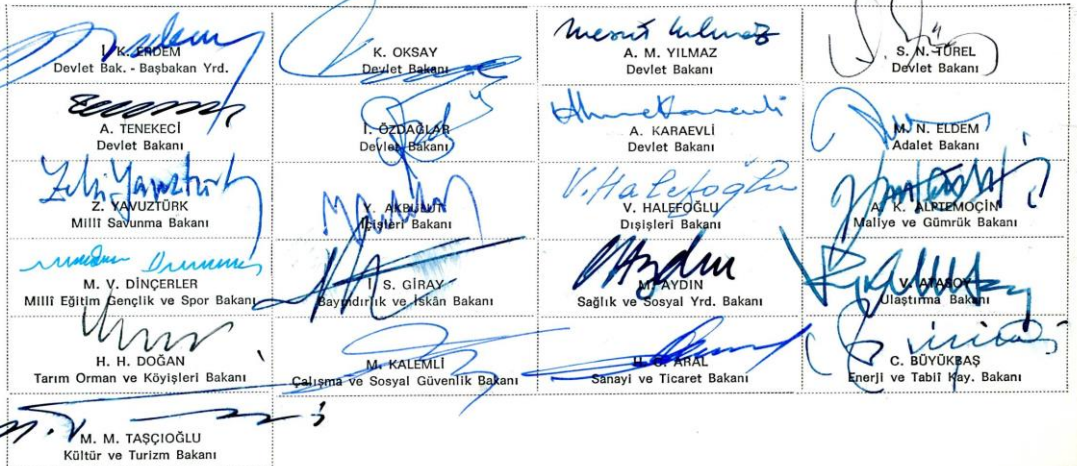 İ. K. ERDEM
Devlet Bak. - Başbakan Yrd.
K. OKSAY
Devlet Bakanı
Mesut Yılmaz
A. M. YILMAZ
Devlet Bakanı
S. N. TÜREL
Devlet Bakanı
A. TENEKECİ
Devlet Bakanı
İ. ÖZDAĞLAR
Devlet Bakanı
A. KARAEVLİ
Devlet Bakanı
M. N. ELDEM
Adalet Bakanı
Zeki Yavuztürk
Z. YAVUZTÜRK
Millî Savunma Bakanı
Y. AKBULUT
İçişleri Bakanı
V. Halefoğlu
V. HALEFOĞLU
Dışişleri Bakanı
A. K. ALPTEMOÇİN
Maliye ve Gümrük Bakanı
M. V. DİNÇERLER
Millî Eğitim Gençlik ve Spor Bakanı
İ. S. GİRAY
Bayındırlık ve İskân Bakanı
MAydın
M. AYDIN
Sağlık ve Sosyal Yrd. Bakanı
V. ATASOY
Ulaştırma Bakanı
H. H. DOĞAN
Tarım Orman ve Köyişleri Bakanı
M. KALEMLİ
Çalışma ve Sosyal Güvenlik Bakanı
H. C. ARAL
Sanayi ve Ticaret Bakanı
C. BÜYÜKBAŞ
Enerji ve Tabiî Kay. Bakanı
M. M. TAŞÇIOĞLU
Kültür ve Turizm Bakanı